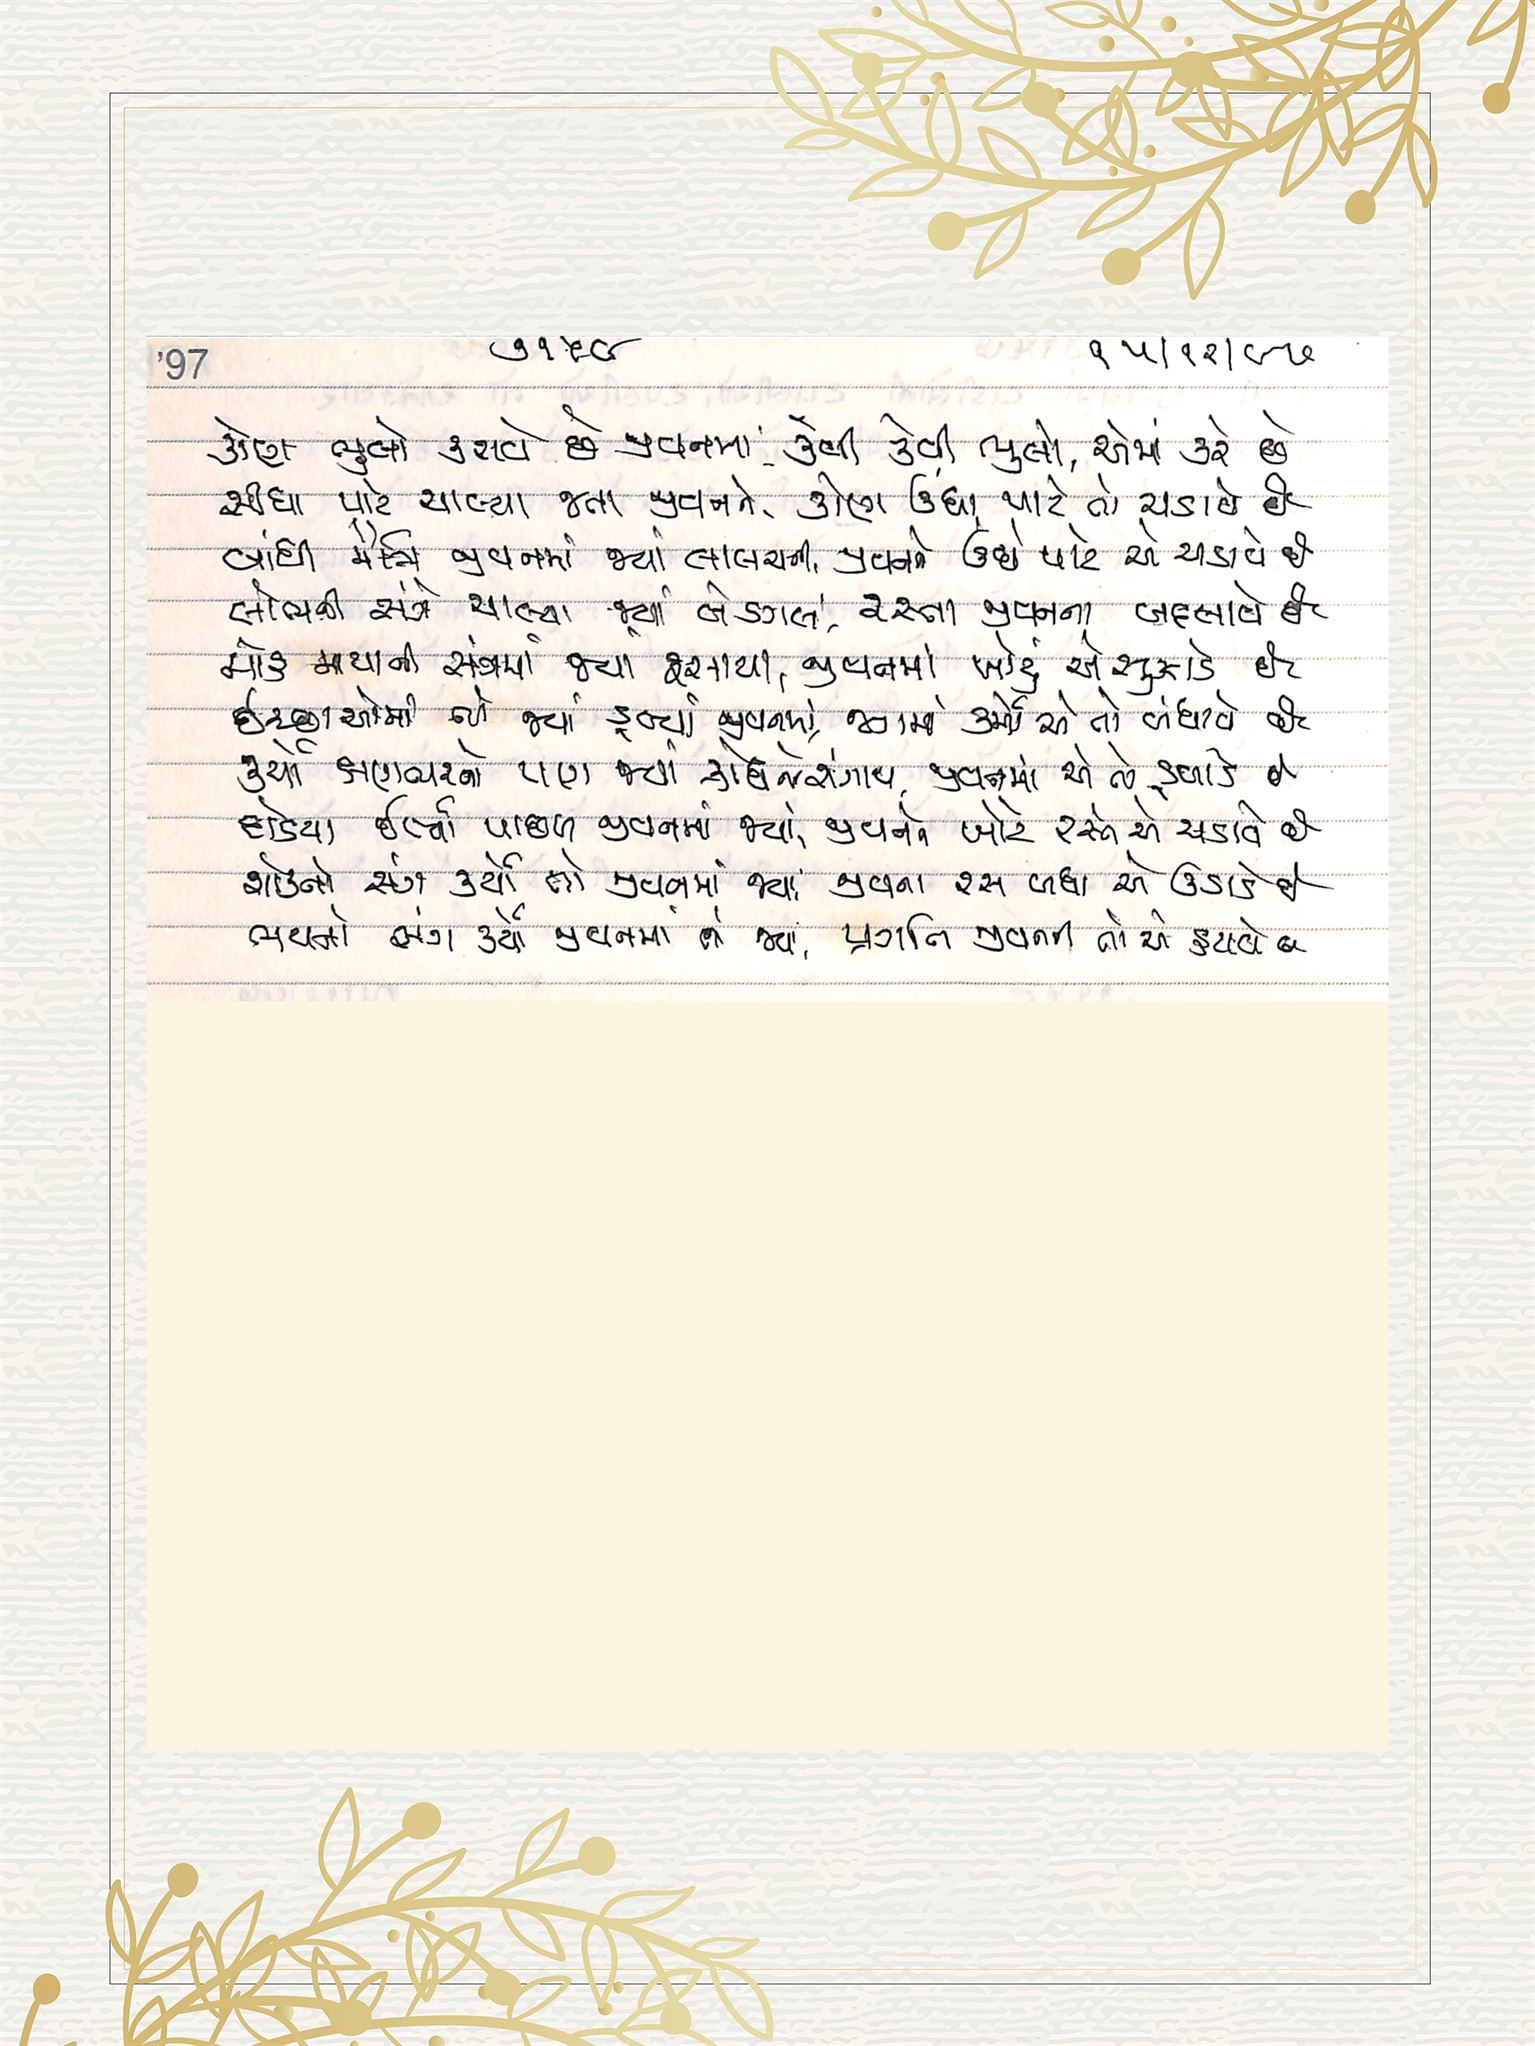 '97 ૭૧૫૯ ૧૫/૧૨/૯૭
કોણ ભુલો કરાવે છે જીવનમાં, કેવી કેવી ભુલો, એમાં કરે છે
સીધા પાટે ચાલ્યા જતા જીવનને, કોણ ઉંધા પાટે તો ચડાવે છે
બાંધી મૈત્રિ જીવનમાં જ્યાં લાલચની, જીવનને ઉંધે પાટે એ ચડાવે છે
લોભની સંગે ચાલ્યા જ્યાં બે ડગલાં, રસ્તા જીવનના બદલાવે છે
મોહ માયાની સંગમાં જ્યાં ફસાયા, જીવનમાં ખોટું એ સુઝાડે છે
ઈચ્છાઓમાં જો જ્યાં ડૂબ્યાં જીવનમાં, જગમાં કર્મો એ તો બંધાવે છે
કર્યો ક્ષણભરનો પણ જ્યાં ક્રોધને સંગાથ, જીવનમાં એ તો ડુબાડે છે
દોડયા ઈર્ષ્યા પાછળ જીવનમાં જ્યાં, જીવનને ખોટે રસ્તે એ ચડાવે છે
શોકનો સંગ કર્યો જો જીવનમાં જ્યાં, જીવના રસ બધા એ ઉડાડે છે
ભયનો સંગ કર્યો જીવનમાં જો જ્યાં, પ્રગતિ જીવનની તો એ રૂંધાવે છે